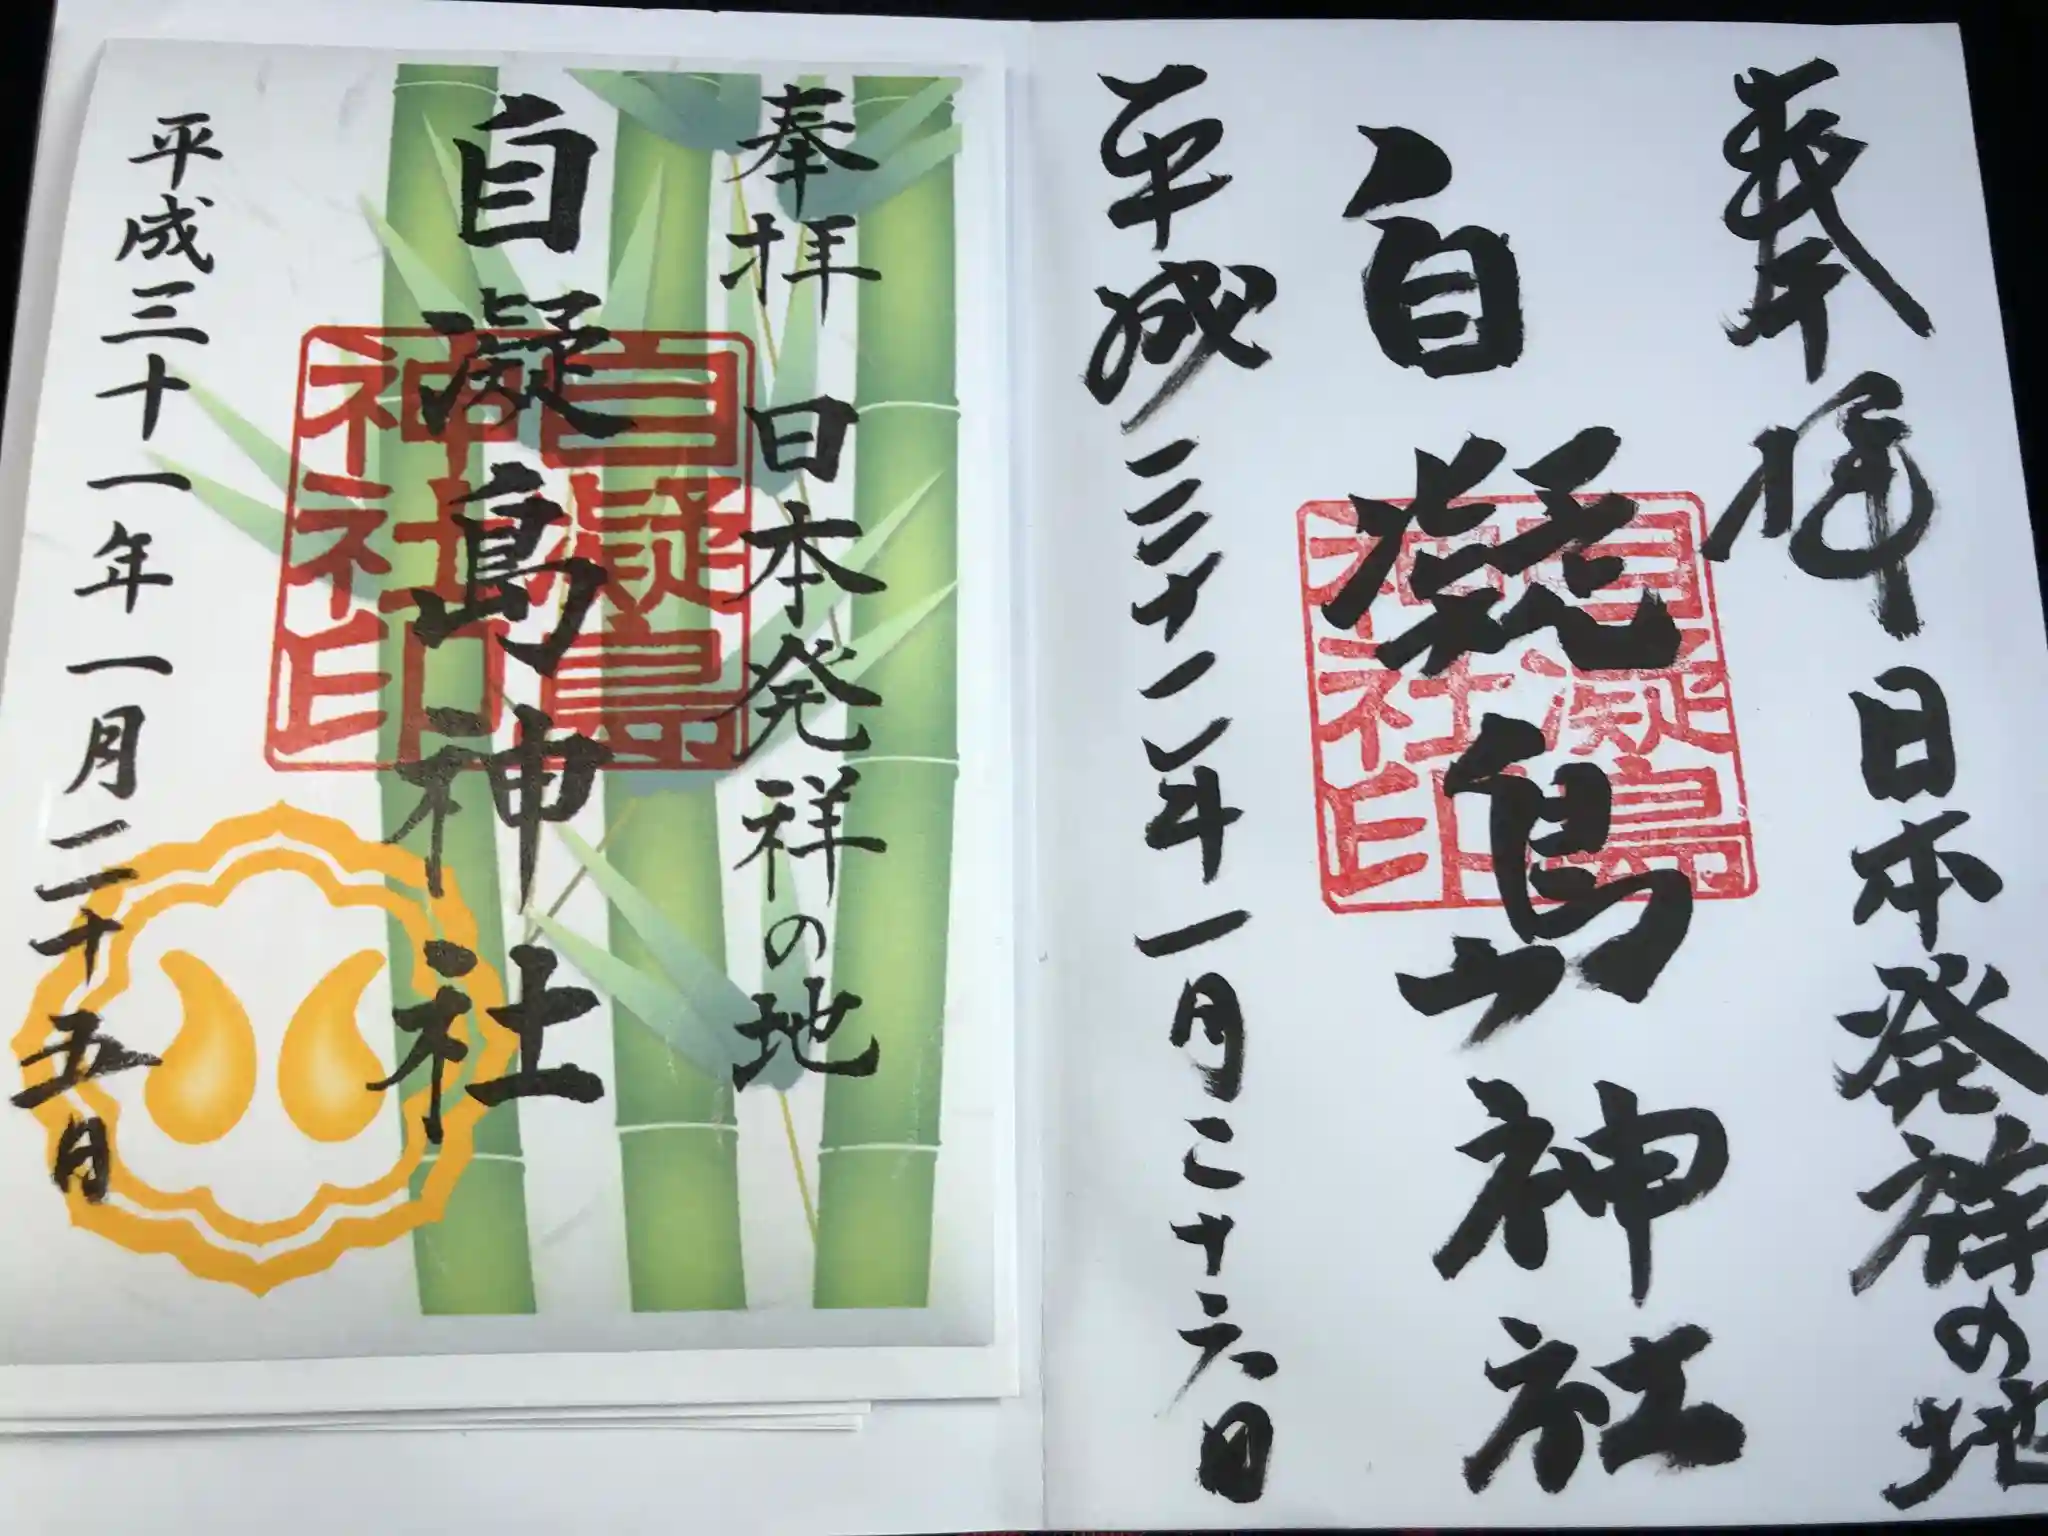 奉拝 日本発祥の地
自凝島神社
平成三十一年一月二十六日
自凝島
神社印
奉拝 日本発祥の地
自凝島神社
平成三十一年一月二十五日
自凝島
神社印